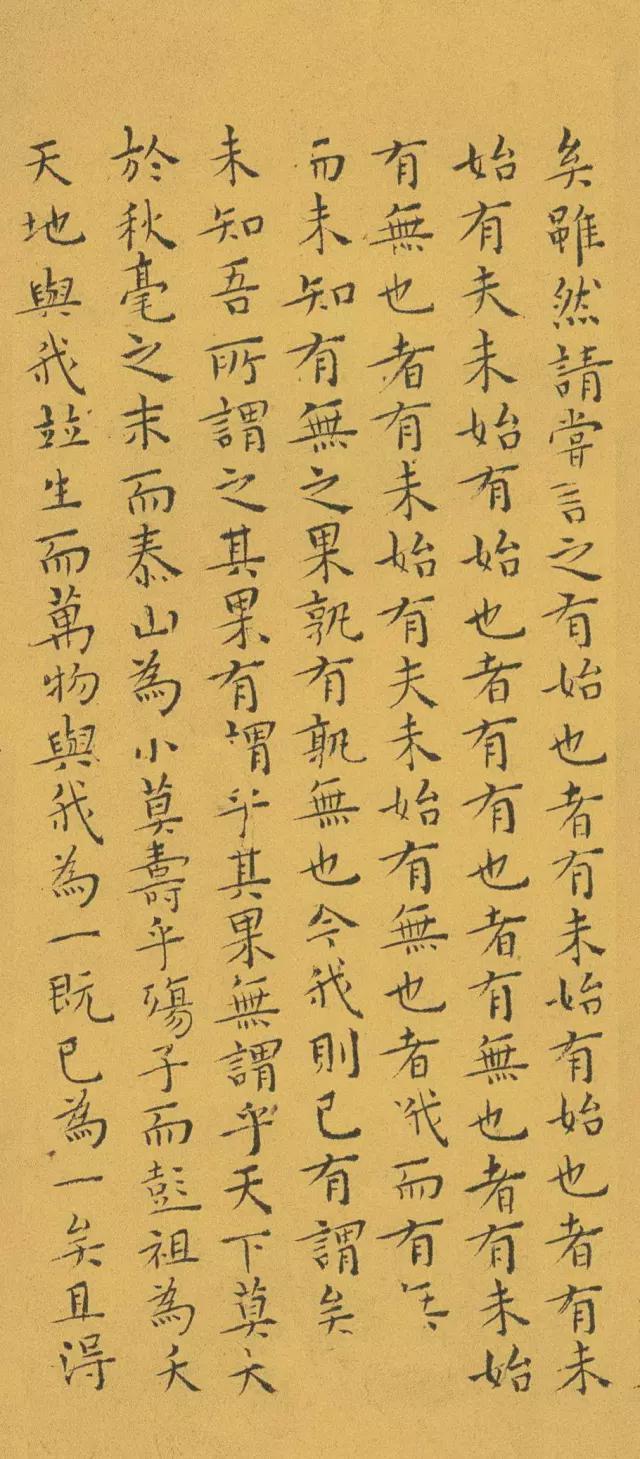 矣雖然請嘗言之有始也者有未始有始也者有未
始有夫未始有始也者有有也者有無也者有未始
有無也者有未始有夫未始有無也者俄而有
而未知有無之果孰有孰無也今我則已有謂矣
未知吾所謂之其果有謂乎其果無謂乎天下莫大
於秋毫之末而泰山為小莫壽乎殤子而彭祖為夭
天地與我竝生而萬物與我為一既已為一矣且得